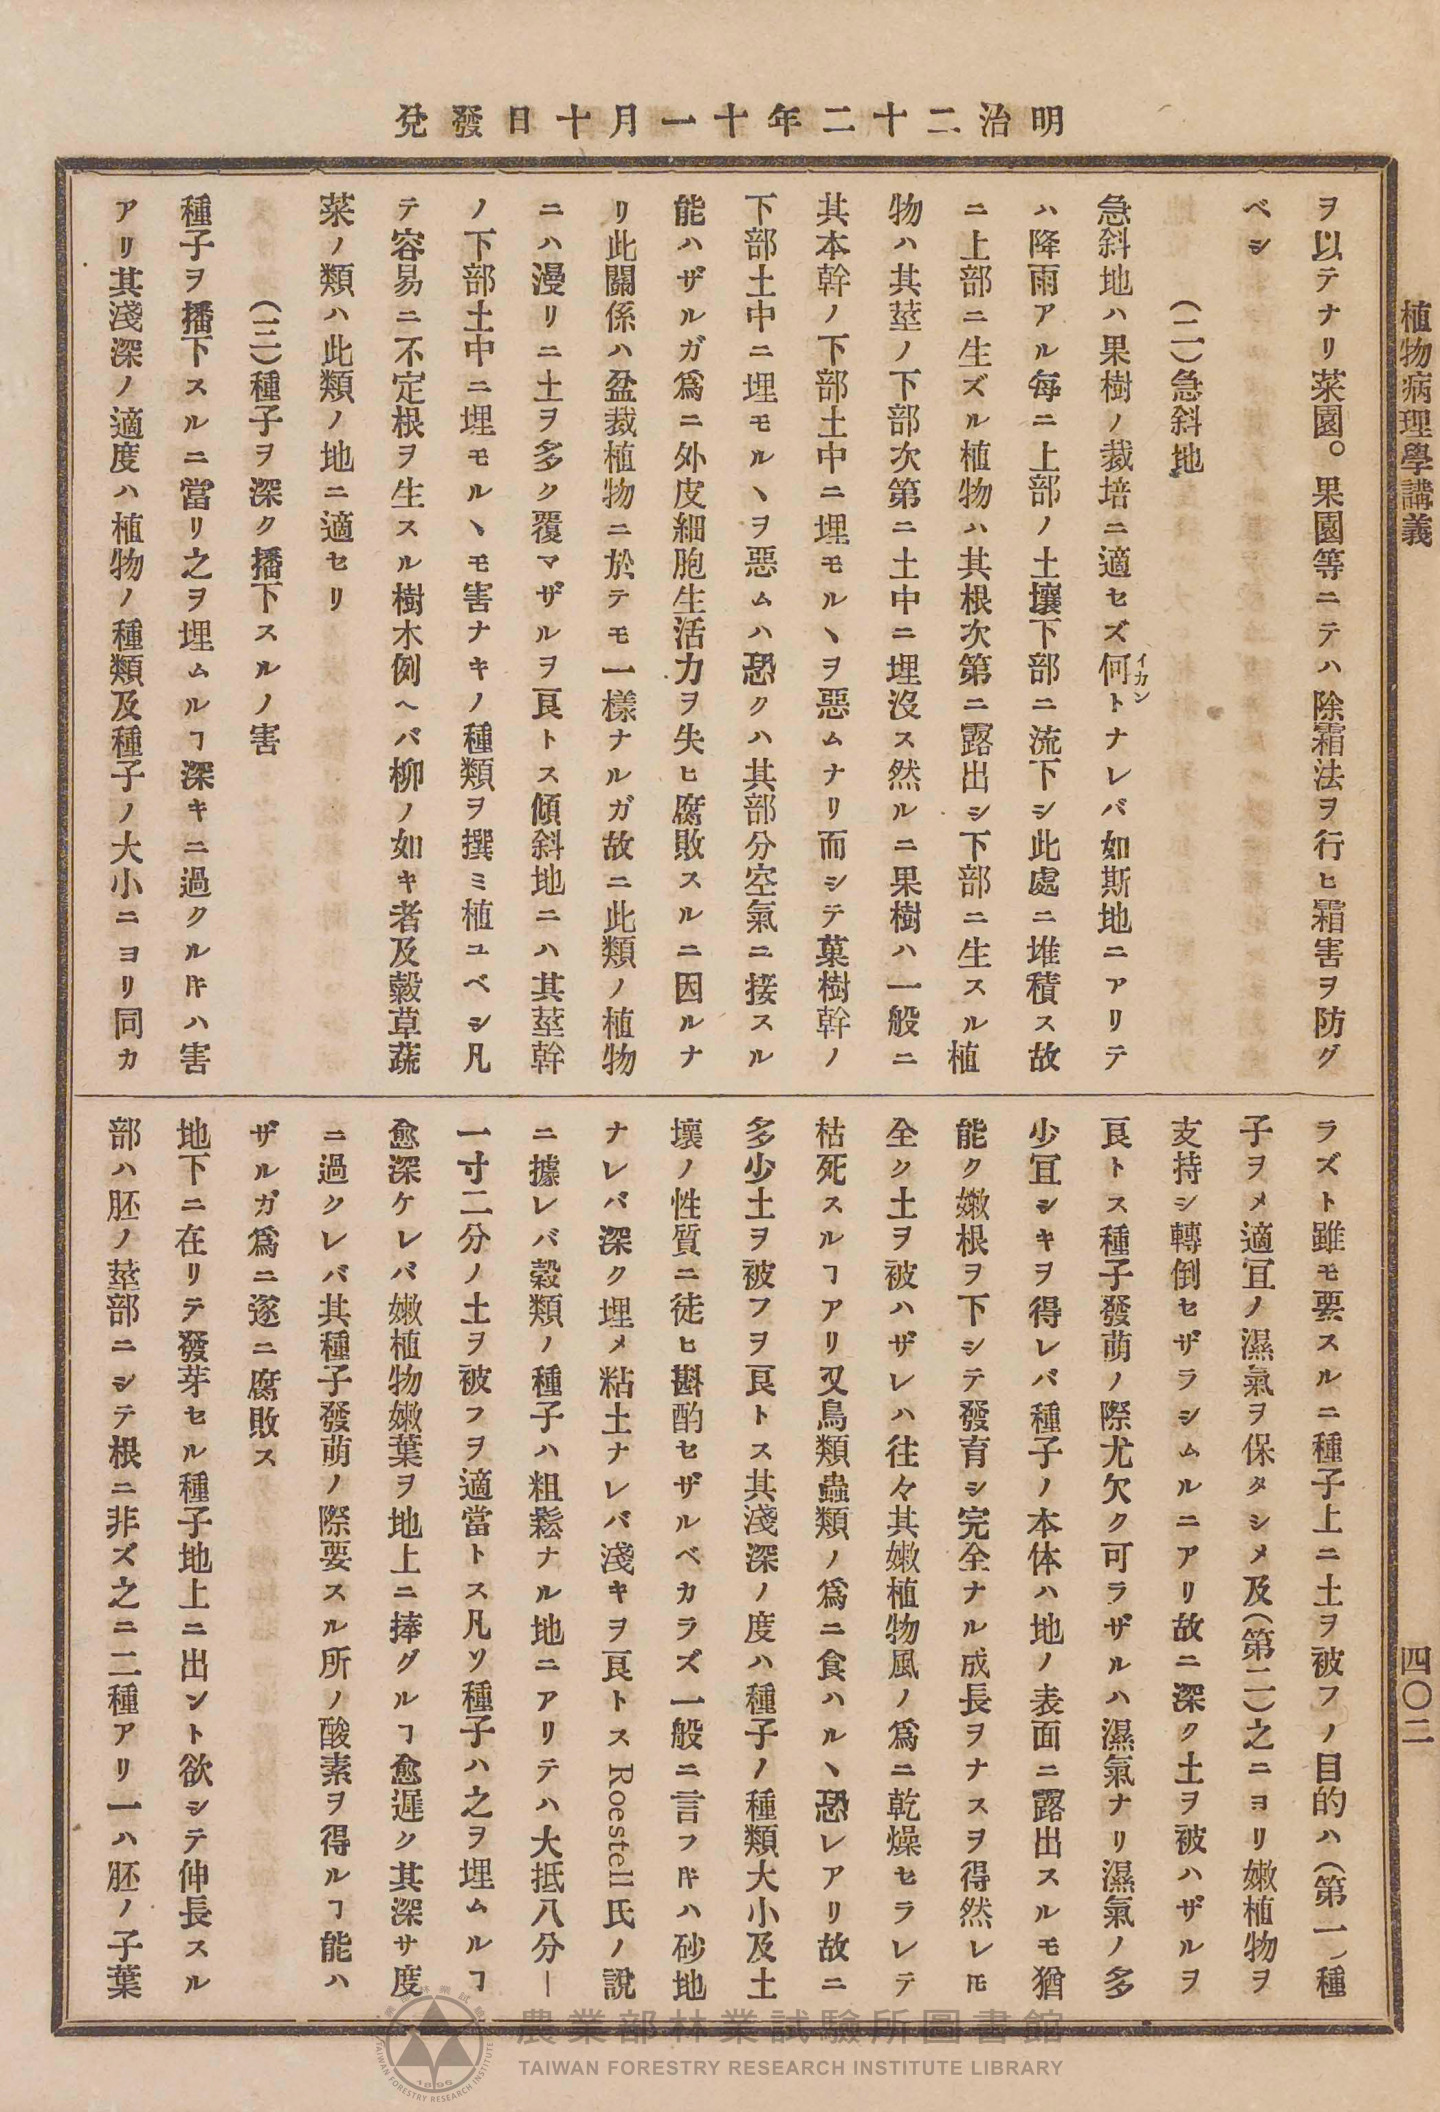 明治二十二年十一月十日發兌
植物病理學講義
四〇二
ヲ以テナリ菜園。果園等ニテハ除霜法ヲ行ヒ霜害ヲ防グ
ベシ
(二)急斜地
急斜地ハ果樹ノ栽培ニ適セズ何トナレバ如斯地ニアリテ
イカン
ハ降雨アル每ニ上部ノ土壤下部ニ流下シ此處ニ堆積ス故
ニ上部ニ生ズル植物ハ其根次第ニ露出シ下部ニ生スル植
物ハ其莖ノ下部次第ニ土中ニ埋沒ス然ルニ果樹ハ一般ニ
其本幹ノ下部土中ニ埋モルヽヲ惡ムナリ而シテ菓樹幹ノ
下部土中ニ埋モルヽヲ惡ムハ恐クハ其部分空氣ニ接スル
能ハザルガ爲ニ外皮細胞生活力ヲ失ヒ腐敗スルニ因ルナ
リ此關係ハ盆裁植物ニ於テモ一樣ナルガ故ニ此類ノ植物
ニハ漫リニ土ヲ多ク覆マザルヲ良トス傾斜地ニハ其莖幹
ノ下部土中ニ埋モルヽモ害ナキノ種類ヲ撰ミ植ユベシ凡
テ容易ニ不定根ヲ生スル樹木例ヘバ柳ノ如キ者及穀草蔬
菜ノ類ハ此類ノ地ニ適セリ
(三)種子ヲ深ク播下スルノ害
種子ヲ播下スルニ當リ之ヲ埋ムルヿ深キニ過クル𪜈ハ害
アリ其淺深ノ適度ハ植物ノ種類及種子ノ大小ニヨリ同カ
ラズト雖モ要スルニ種子上ニ土ヲ被フノ目的ハ(第一)種
子ヲメ適宜ノ濕氣ヲ保タシメ及(第二)之ニヨリ嫩植物ヲ
支持シ轉倒セザラシムルニアリ故ニ深ク土ヲ被ハザルヲ
良トス種子發萌ノ際尤欠ク可ラザルハ濕氣ナリ濕氣ノ多
少宜シキヲ得レバ種子ノ本体ハ地ノ表面ニ露出スルモ猶
能ク嫩根ヲ下シテ發育シ完全ナル成長ヲナスヲ得然レ𪜈
全ク土ヲ被ハザレハ往々其嫩植物風ノ爲ニ乾燥セラレテ
枯死スルヿアリ又鳥類蟲類ノ爲ニ食ハルヽ恐レアリ故ニ
多少土ヲ被フヲ良トス其淺深ノ度ハ種子ノ種類大小及土
壤ノ性質ニ徒ヒ斟酌セザルベカラズ一般ニ言フ𪜈ハ砂地
ナレバ深ク埋メ粘土ナレバ淺キヲ良トス Roestell 氏ノ說
ニ據レバ穀類ノ種子ハ粗鬆ナル地ニアリテハ大抵八分―
一寸二分ノ土ヲ被フヲ適當トス凡ソ種子ハ之ヲ埋ムルヿ
愈深ケレバ嫩植物嫩葉ヲ地上ニ捧グルヿ愈遲ク其深サ度
ニ過クレバ其種子發萌ノ際要スル所ノ酸素ヲ得ルヿ能ハ
ザルガ爲ニ遂ニ腐敗ス
地下ニ在リテ發芽セル種子地上ニ出ントト欲シテ伸長スル
部ハ胚ノ莖部ニシテ根ニ非ズ之ニ二種アリ一ハ胚ノ子葉
農業部林業試驗所圖書館
TAIWAN FORESTRY RESEARCH INSTITUTE LIBRARY
TAIWAN FORESTRY RESEARCH INSTITUTE
1896